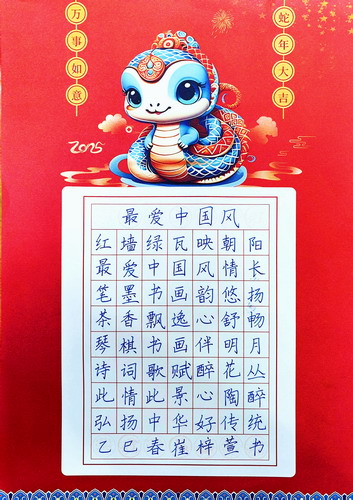 万事如意
蛇年大吉
2025
最爱中国风
红墙绿瓦映朝阳
最爱中国风情长
笔墨书画韵悠扬
茶香飘逸心舒畅
琴棋书画伴明月
诗词歌赋醉花丛
此情此景心陶醉
弘扬中华好传统
乙巳春崔梓萱书